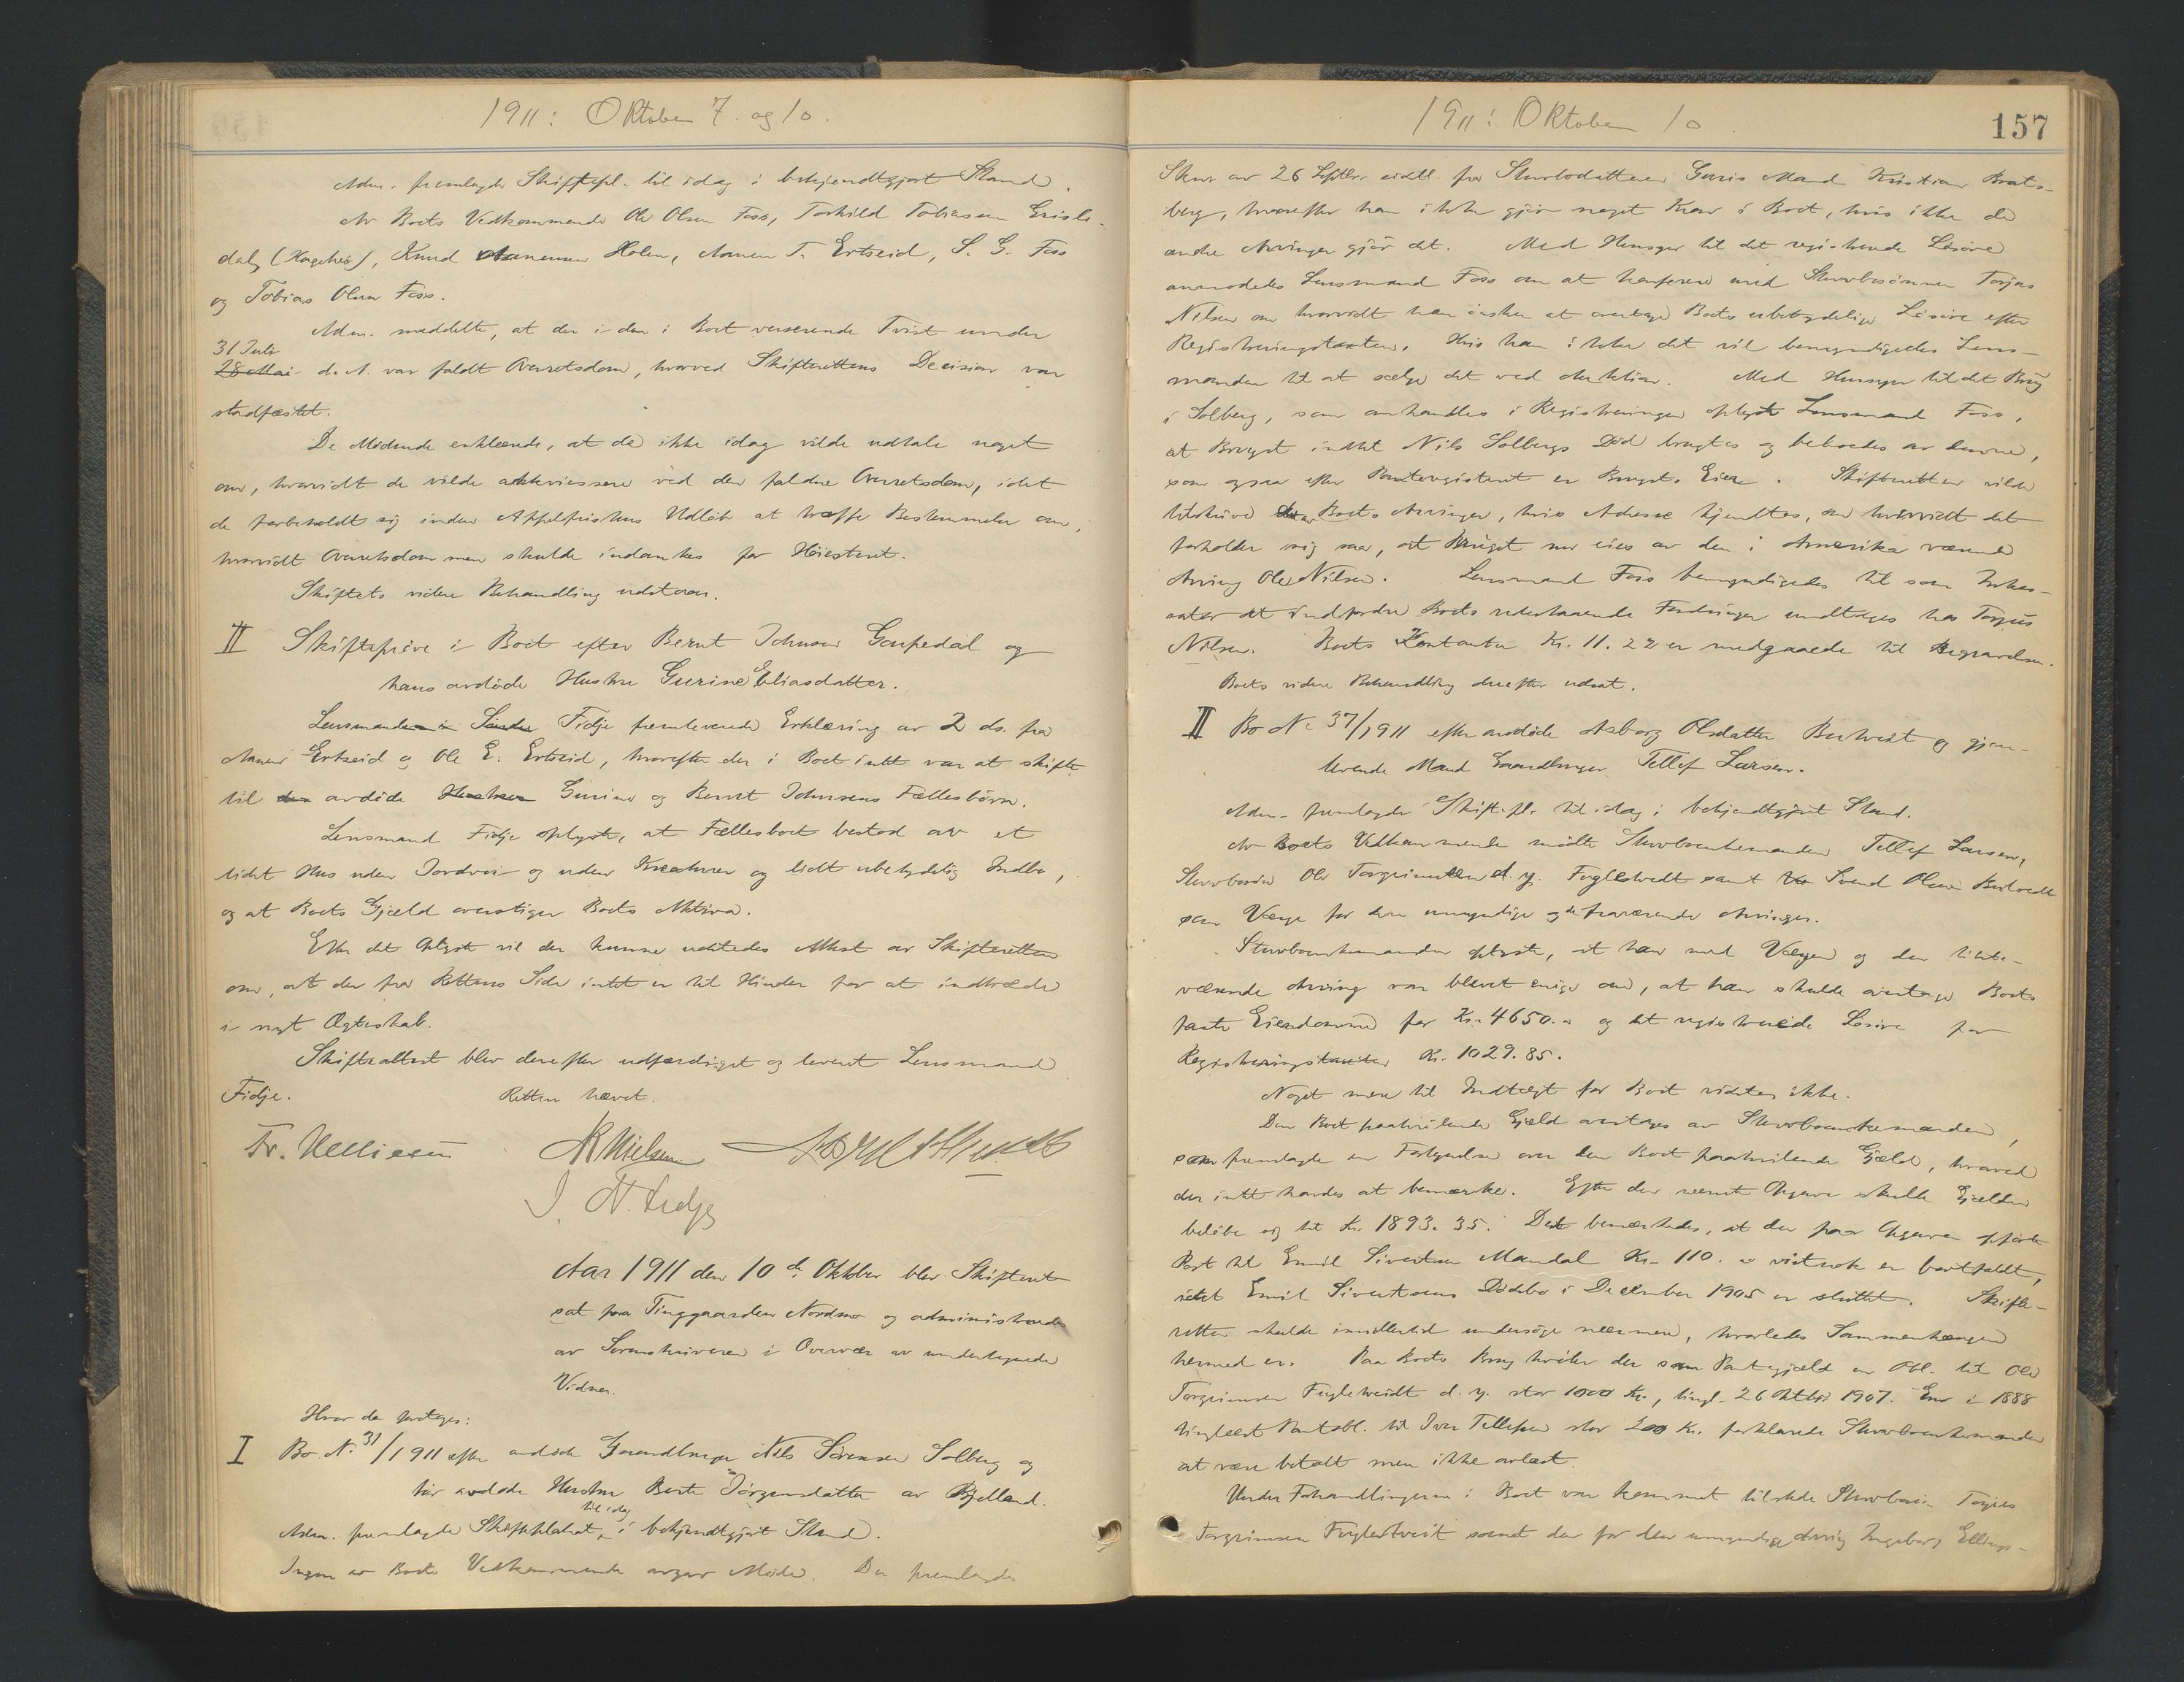 1911: Oktober 7 og 10.
Adm. fremlagde Skiftepl. til idag i bekjendtgjort Stand.
Av Boets Vedkommende Ole Olsen Foss, Torkild Tobiassen
dal, Knud Aanensen Holen, Aanen T. Ertseid, S. G. Foss
og Tobias Olsen Foss.
Adm. meddelte, at der i den i Boet verserende Tvist under
31 Juli
28 Mai d. A. var faldt Overretsdom, hvorved Skifterettens Decision var
stadfæstet.
De Mødende erklærede, at de ikke idag vilde udtale noget
om, hvorvidt de vilde akkviessere ved den faldne Overretsdom, idet
de forbeholdt sig inden Appelfristens Udløb at træffe Bestemmelse om,
hvorvidt Overretsdommen skulde indankes for Høiesteret.
Skiftets videre Behandling udstaar.
II Skifteprøve i Boet efter Bernt Johnsen Gaupedal og
hans avdøde Hustru Gurine Eliasdatter.
Lensmanden i Søndre Fidje fremleverede Erklæring av 2 ds. fra
Aanen Ertseid og Ole E. Ertseid, hvorefter der i Boet intet var at skifte
til den avdøde Hustru Gurine og Bernt Johnsens Fællesbørn.
Lensmand Fidje oplyste, at Fællesboet bestod av et
lidet Hus uden Jordvei og uden Kreaturer og lidt ubetydelig Indbo,
og at Boets Gjæld overstiger Boets Aktiva.
Efter det Oplyste vil der kunne udstedes Attest av Skifteretten
om, at der fra Rettens Side intet er til Hinder for at indtræde
i nyt Ægteskab.
Skifteattest blev derefter udfærdiget og leveret Lensmand
Fidje. Retten hævet.
N. Fidje
Aar 1911 den 10de Oktober blev Skifteret
sat paa Tinggaarden Nordmo og administreredes
av Sorenskriveren i Overvær av undertegnede
Vidner.
Hvor da foretages:
I Bo No. 31/1911 efter avdøde Gaardbruger Nils Sørensen Solberg og
før avdøde Hustru Berte Jørgensdatter av Bjelland.
til idag
Adm. fremlagde Skifteplakat, i bekjendtgjort Stand.
Ingen av Boets Vedkommende avgav Møde. Der fremlagdes
1911: Oktober 10
157
Skriv av 26 Septbr. sidstl. fra Stervbodatteren Guris Mand Kristian Brats-
berg, hvorefter han ikke gjør noget Krav i Boet, hvis ikke de
andre Arvinger gjør det. Med Hensyn til det registrerede Løsøre
anmodedes Lensmand Foss om at konferere med Stervbosønnen Torjus
Nilsen om hvorvidt han ønsker at overtage Boets ubetydelige Løsøre efter
Registreringstaxten. Hvis han ikke det vil bemyndigedes Lens-
manden til at sælge det ved Auktion. Med Hensyn til det Brug
i Solberg, som omhandles i Registreringen oplyste Lensmand Foss,
at Bruget indtil Nils Solbergs Død brugtes og beboedes av denne,
som ogsaa efter Panteregisteret er Brugets Eier. Skifteretten vilde
tilskrive Boets Arvinger, hvis Adresse kjendtes, om hvorvidt det
forholder sig saa, at Bruget nu eies av den i Amerika værende
Arving Ole Nilsen. Lensmand Foss bemyndigedes til som Inkas-
sator at indfordre Boets udestaaende Fordringer undtagen hos Torjus
Nilsen. Boets Kontanter Kr. 11.22 er medgaaede til Begravelsen.
Boets videre Behandling derefter udsat.
II Bo No 37/1911 efter avdøde Asborg Olsdatter Birkvedt og gjen-
levende Mand Gaardbruger Tellef Larsen.
Adm. fremlagde Skift.pl. til idag i bekjendtgjort Stand.
Av Boets Vedkommende mødte Stervboenkemanden Tellef Larsen,
Stervbosøn Ole Torgrimsen d. y. Fuglestvedt samt Svend Olsen
som Værge for den umyndige og de fraværende Arvinger.
Stervboenkemanden oplyste, at han med Værgen og den tilste-
værende Arving var blevet enige om, at han skulde overtage Boets
faste Eiendomme for Kr. 4650.- og det registrerede Løsøre for
Registreringstaxten Kr. 1029.85.
Noget mere til Indtægt for Boet vidstes ikke.
Den Boet paahvilende Gjæld overtages av Stervboenkemanden,
som fremlagde en Fortegnelse over den Boet paahvilende Gjæld, hvorved
der intet havdes at bemærke. Efter den nævnte Opgave skulde Gjælden
beløbe sig til Kr. 1893.35. Det bemærkedes, at den paa Opgaven opførte
Post til Emil Sivertsen Mandal Kr. 110.- vistnok er bortfaldt,
idet Emil Sivertsens Dødsbo i December 1905 er sluttet. Skifte-
retten skulde imidlertid undersøge nærmere, hvorledes Sammenhængen
hermed er. Paa Boets Brug hviler der som Pantegjæld en Obl. til Ole
Torgrimsen Fuglestvedt d. y. stor 1000 Kr., tingl. 26 Oktbr 1907. En i 1888
tinglæst Pantobl. til Iver Tellefsen stor 200 Kr. forklarede Stervboenkemanden
at være betalt men ikke avlæst.
Under Forhandlingerne i Boet var kommet tilstede Stervbosøn Torjus
Torgrimsen Fuglestveit samt den for den umyndige Arving Ingeborg Ellings-